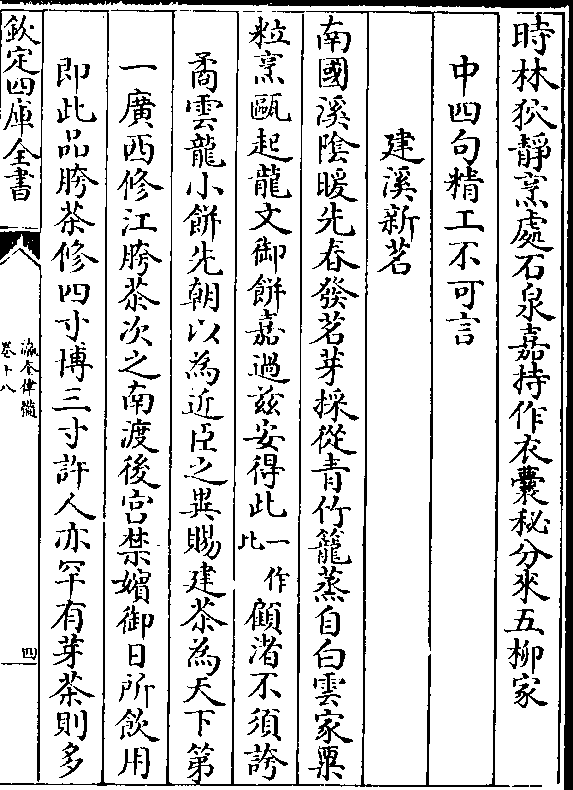 時林狖靜烹處石泉嘉持作衣囊秘分來五柳家
中四句精工不可言
建溪新茗
南國溪陰暖先春發茗芽採從青竹籠蒸自白雲家粟
粒烹甌起龍文御餅嘉過兹安得此一作比顧渚不須誇
矞雲龍小餅先朝以為近臣之異賜建茶為天下第
一廣西修江胯茶次之南渡後宫禁嬪御日所飲用
即此品胯茶修四寸博三寸許人亦罕有芽茶則多
欽定四庫全書
瀛奎律髓
卷十八
四